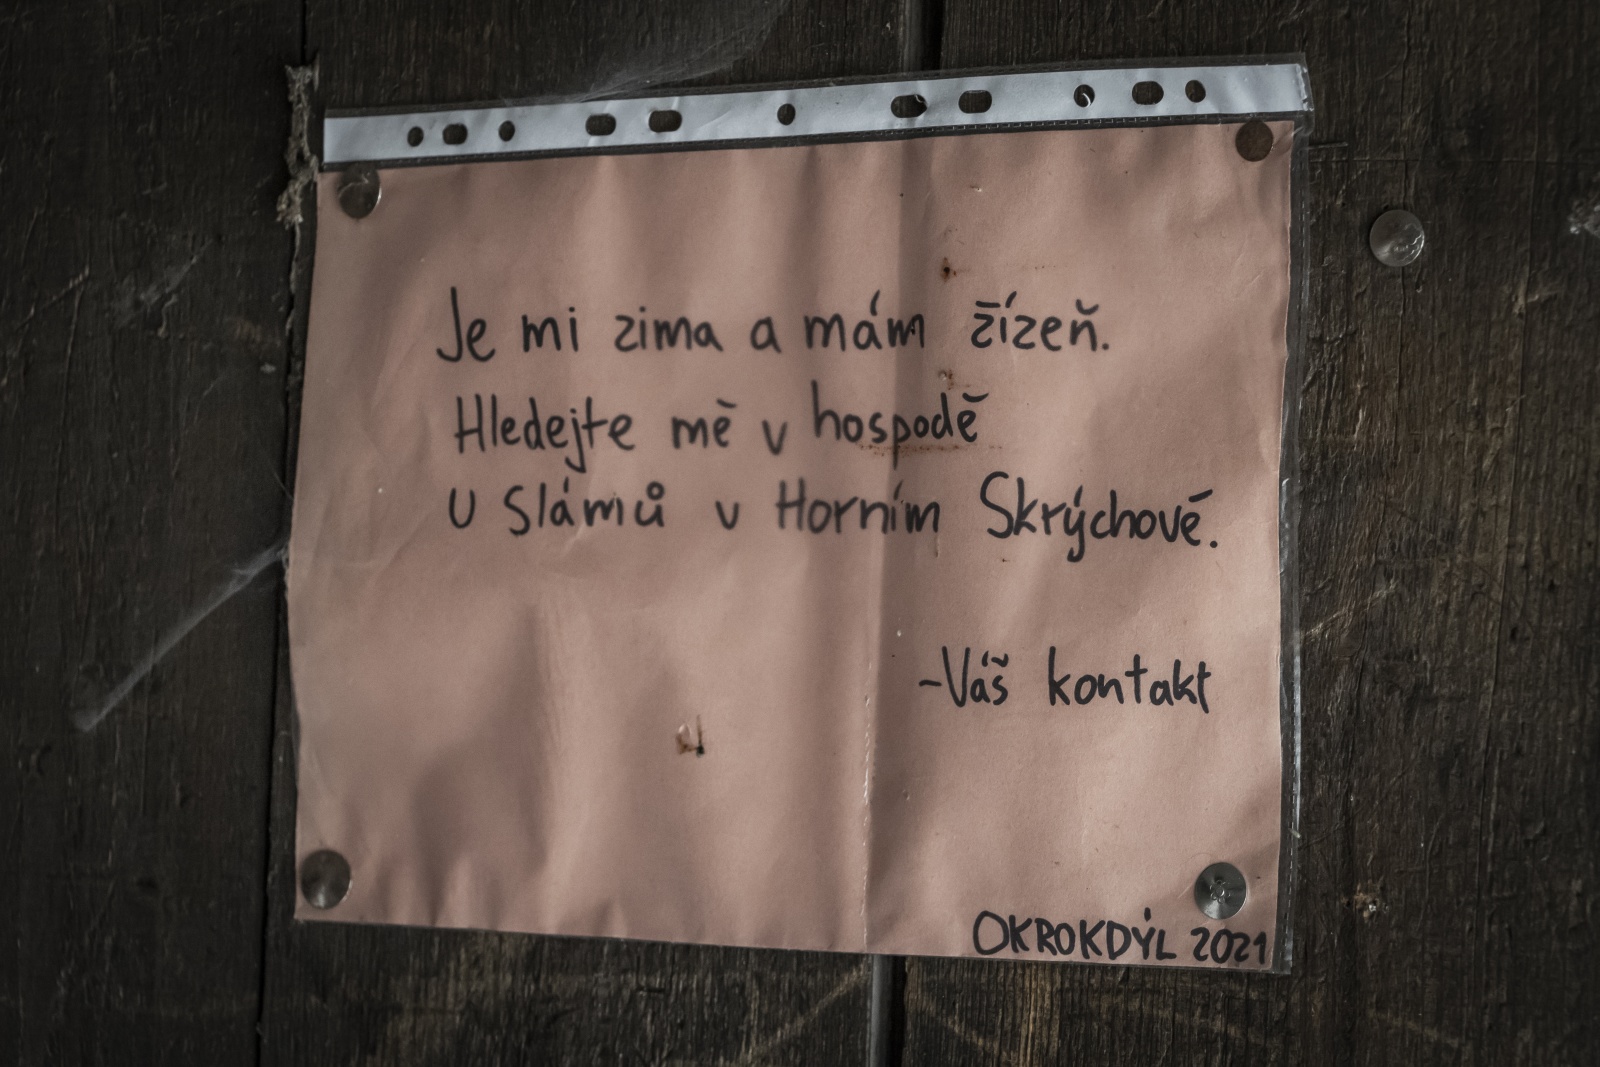 Je mi zima a mám žízeň.
Hledejte mě v hospodě
U Slámů v Horním Skrýchově.
-Váš kontakt
OKROKDÝL 2021